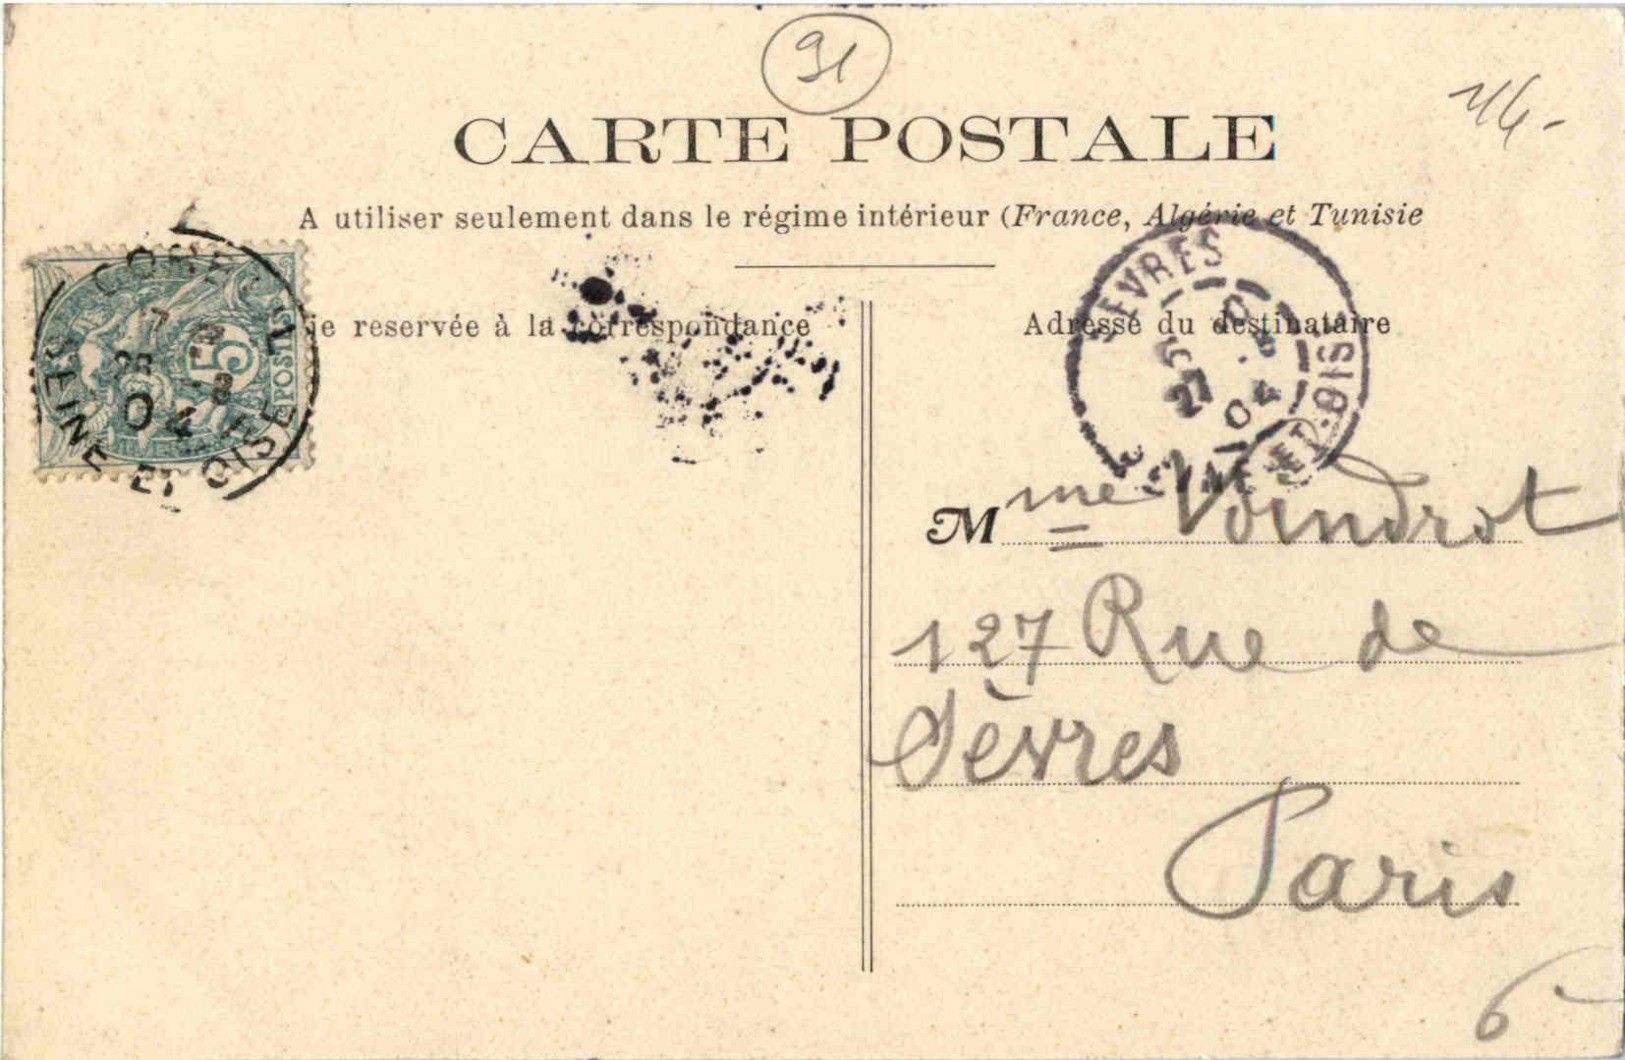 91
CARTE POSTALE
A utiliser seulement dans le régime intérieur (France, Algérie et Tunisie
ie reservée à la correspondance
Adresse du destinataire
CORBEIL
7
5
POSTES
04
SEINE ET OISE
SEVRES
27
04
SEINE ET OISE
Mme Voindrot
127 Rue de
Sèvres
Paris
6